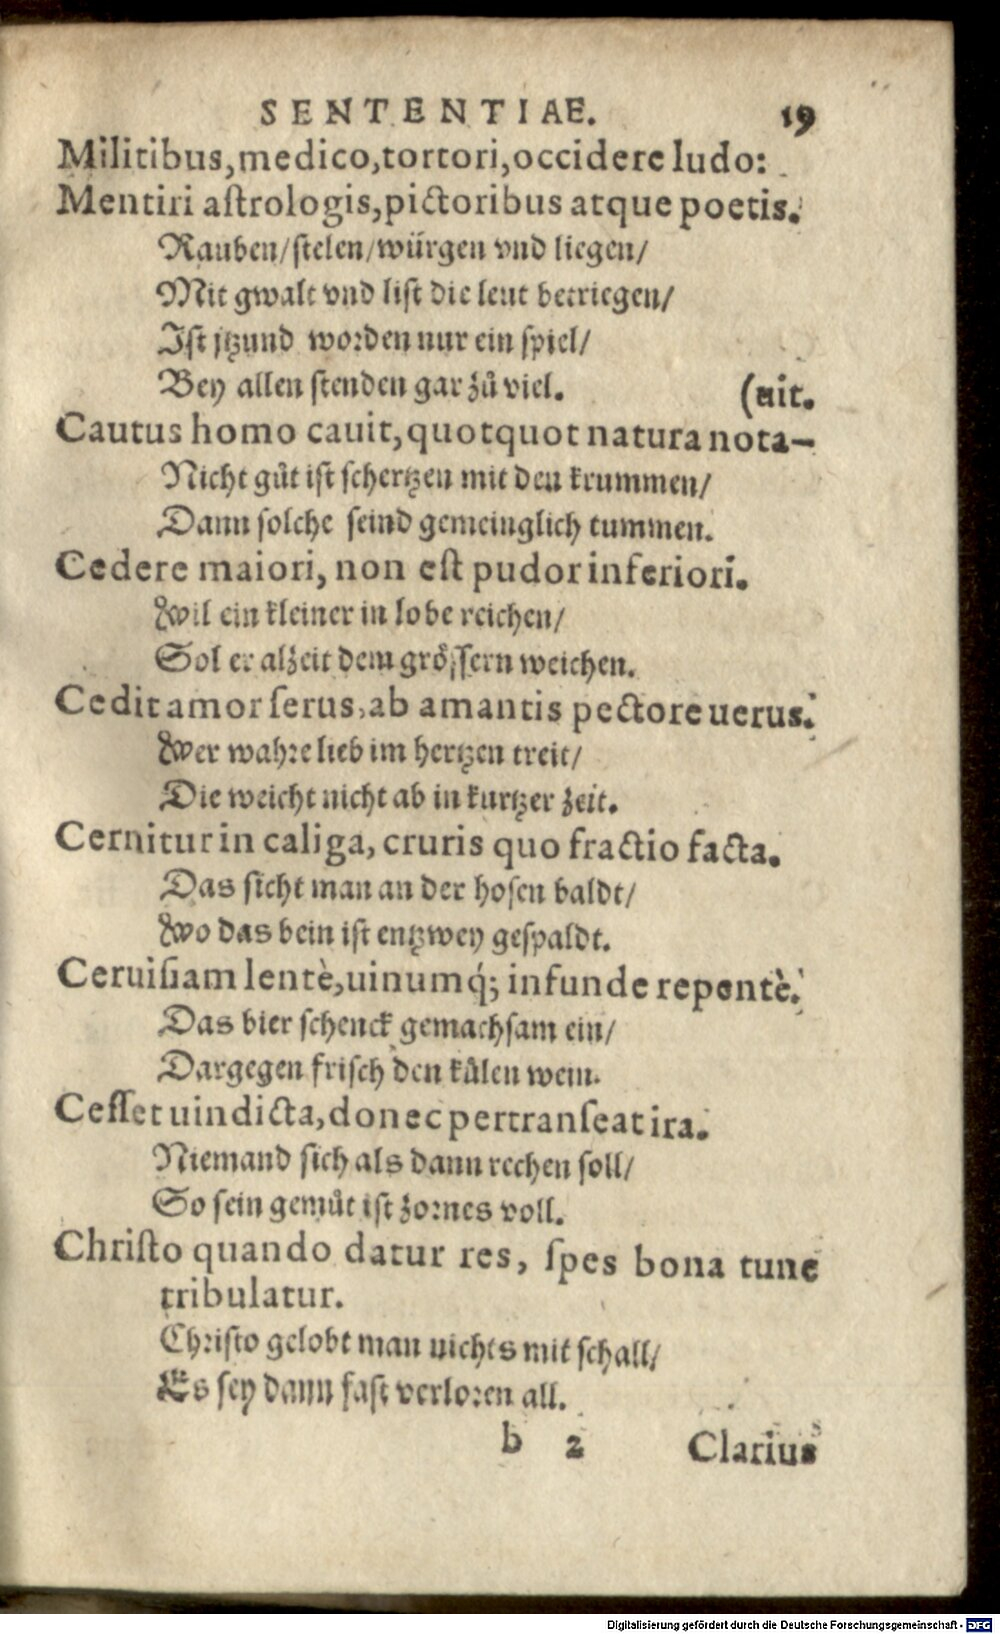 SENTENTIAE. 19
Militibus, medico, tortori, occidere ludo:
Mentiri aſtrologis, pictoribus atque poetis.
Rauben/ ſtelen/ würgen vnd liegen/
Mit gwalt vnd liſt die leut betriegen/
Iſt jtzund worden nur ein ſpiel/
Bey allen ſtenden gar zů viel. (uit.
Cautus homo cauit, quotquot natura nota-
Nicht gůt iſt ſchertzen mit den krummen/
Dann ſolche ſeind gemeinglich tummen.
Cedere maiori, non eſt pudor inferiori.
Wil ein kleiner in lobe reichen/
Sol er alzeit dem gröſſern weichen.
Cedit amor ſerus, ab amantis pectore uerus.
Wer wahre lieb im hertzen treit/
Die weicht nicht ab in kurtzer zeit.
Cernitur in caliga, cruris quo fractio facta.
Das ſicht man an der hoſen baldt/
Wo das bein iſt entzwey geſpaldt.
Ceruiſiam lentè, uinumq́; infunde repentè.
Das bier ſchenck gemachſam ein/
Dargegen friſch den kůlen wein.
Ceſſet uindicta, donec pertranſeat ira.
Niemand ſich als dann rechen ſoll/
So ſein gemůt iſt zornes voll.
Chriſto quando datur res, ſpes bona tunc
tribulatur.
Chriſto gelobt man nichts mit ſchall/
Es ſey dann faſt verloren all.
b 2 Clarius
Digitalisierung gefördert durch die Deutsche Forschungsgemeinschaft - DFG